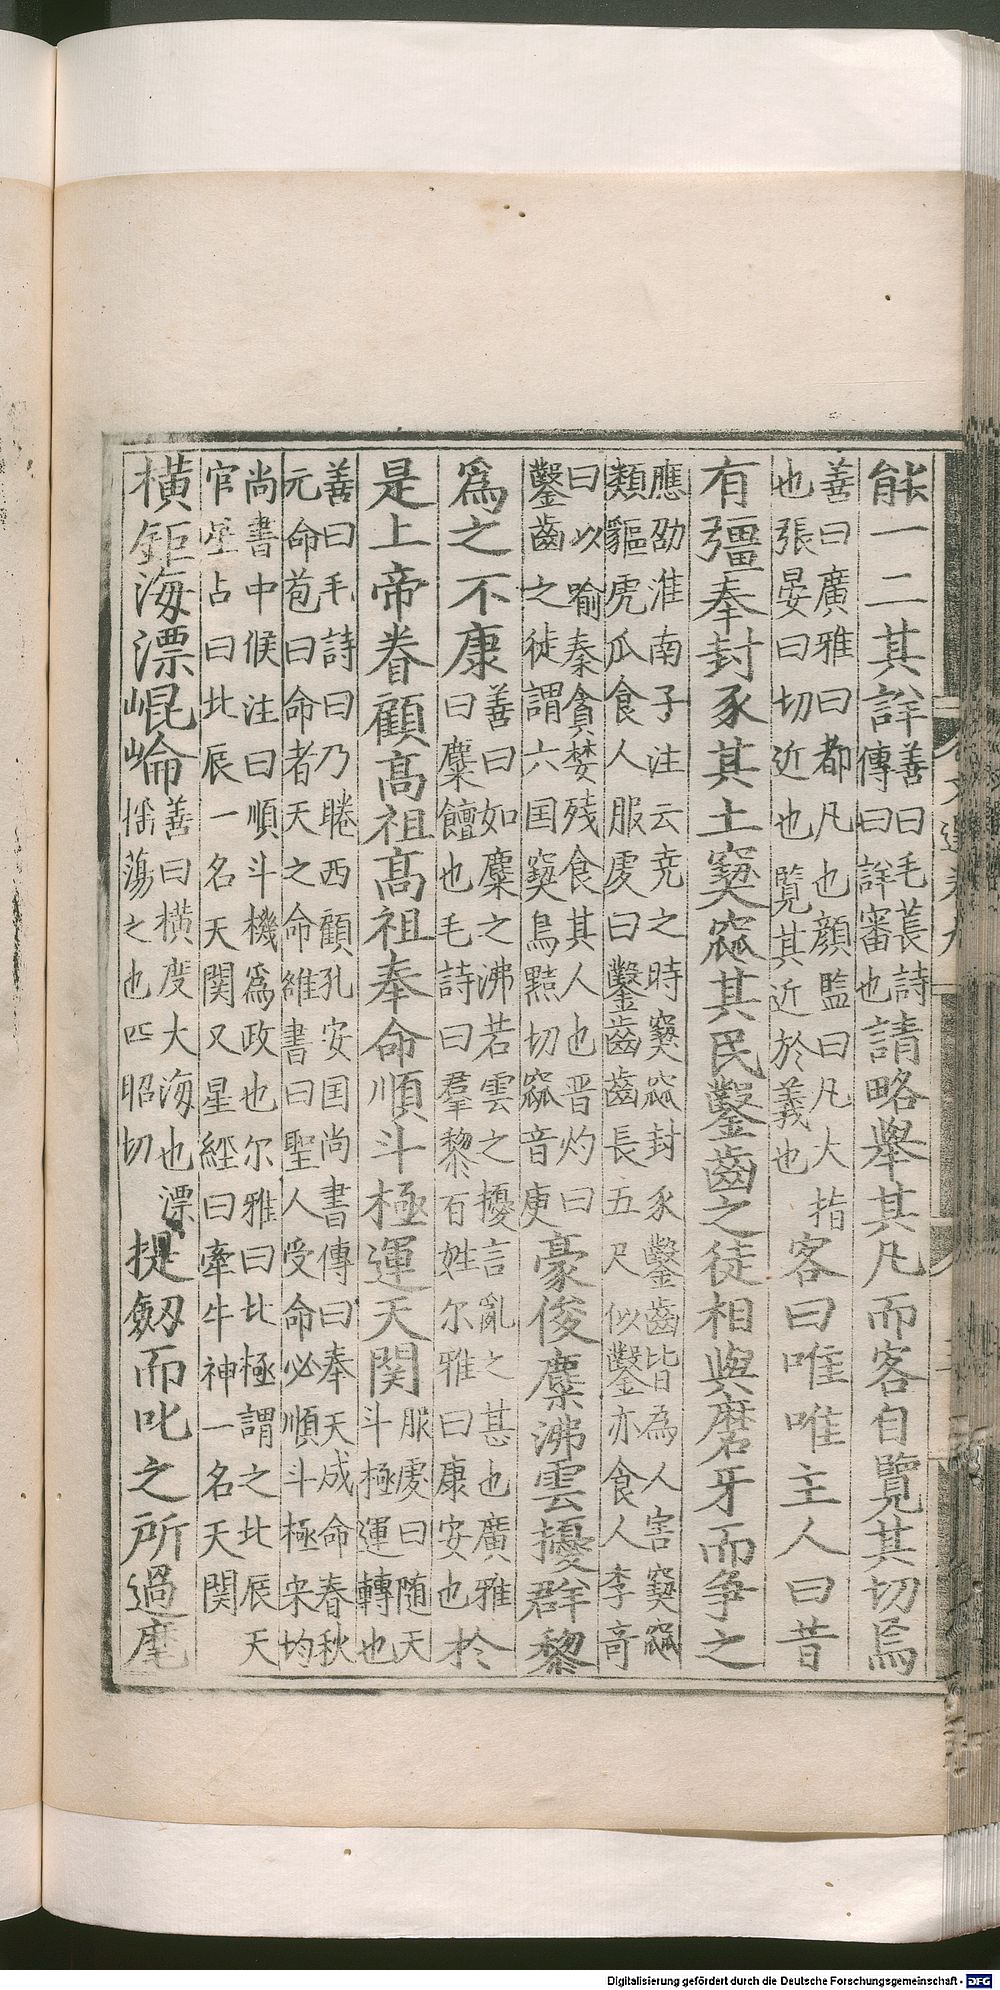 能一二其詳善曰毛萇詩傳曰詳審也請略舉其凡而客自覽其切焉
善曰廣雅曰都凡也顔監曰凡大指也張晏曰切近也覽其近於義也客曰唯唯主人曰昔
有彊奉封豕其土窫窳其民鑿齒之徒相與磨牙而爭之
應劭淮南子注云尭之時窫窳封豕鑿齒皆為人害窫窳類貙虎瓜食人服䖍曰鑿齒齒長五尺似鑿亦食人李竒
曰以喻秦貪婪殘食其人也晋灼曰鑿齒之徒謂六国窫烏黠切窳音庾豪俊麋沸雲擾群黎
為之不康善曰如麋之沸若雲之擾言亂之甚也廣雅曰麋饘也毛詩曰羣黎百姓尔雅曰康安也於
是上帝眷顧髙祖髙祖奉命順斗極運天関服䖍曰随天斗極運轉也
善曰毛詩曰乃睠西顧孔安国尚書傳曰奉天成命春秋元命苞曰命者天之命雒書曰聖人受命必順斗極宋均
尚書中候注曰順斗機為政也尔雅曰北極謂之北辰天官星占曰北辰一名天関又星經曰牽牛神一名天関
横鉅海漂崐崘善曰横度大海也漂揺蕩之也匹昭切提劔而叱之所過麾